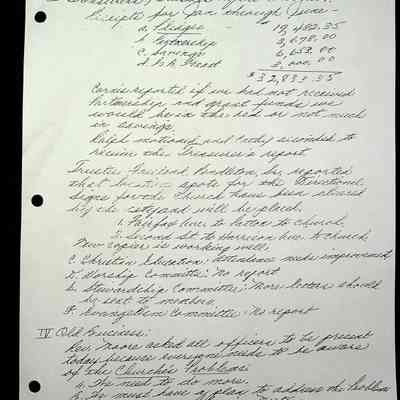 Receipts for Jan through June -
a. Pledges - 19,482.35
b. Partnership 3,678.00
c. Savings 6,653.00
d. 3,000.00
$32,833.35
reported if we had not received
Partnership and grant funds we
would be in the red or not much
in savings.
Ralph motioned and seconded to
receive the Treasurer's report
Trustee Pendleton, reported
that spots for the directional
signs for the Church have been
by the city and will be placed.
1. Fairfax Ave. to to Church.
2. Second St. to Harrison Ave. to Church
New copier is working well.
C. Christian Education: Attendance needs improvement
D. Worship Committee: No report
E. Stewardship Committee: More Doctors should
be sent to members.
F. Evangelism Committee: No report
IV Old Business:
Rev. Moore asked all officers to be present
today because everyone needs to be aware
of the Church's Problems.
a. The need to do more.
b. The must have a plan to address the Problem